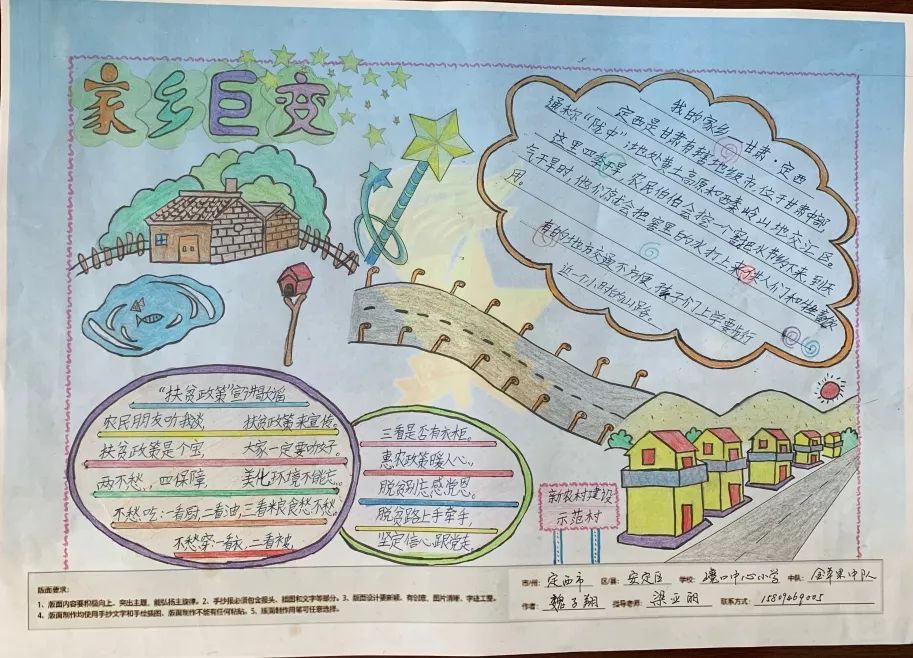 家乡巨变
我的家乡—甘肃·定西
定西是甘肃省辖地级市位于甘肃中部
通称“陇中”,地处黄土高原和西秦岭山地交汇区。
这里四季干旱,农民伯伯会挖一个窖把水
气干旱时,他们常就会把窖里的水打上来供人们和牲畜饮
用。
有的地方交通不方便,孩子们上学要步行
近一个小时的山路。
“扶贫政策”宣讲歌谣
农民朋友听我谈, 扶贫政策来宣传。
扶贫政策是个宝, 大家一定要听好。
两不愁,四保障, 美化环境不能忘。
不愁吃:一看厨,二看油,三看粮食愁不愁。
不愁穿:一看衣,二看被,
三看是否有衣柜。
惠农政策暖人心,
脱贫别忘感党恩。
脱贫路上手牵手,
坚定信心跟党走。
新农村建设
示范村
版面要求:
1、版面内容要积极向上,突出主题,能弘扬主旋律。2、手抄报必须包含报头、插图和文字等部分。3、版面设计要新颖,有创意,图片清晰,字迹工整。
4、版面制作均使用手抄文字和手绘插图,版面制作不能有任何粘贴。5、版面制作用笔可任意选择。
市/州: 定西市 区/县: 安定区 学校: 口中心小学 中队: 金苹果中队
作者: 魏子翔 指导老师: 梁亚丽 联系方式: 15809469005